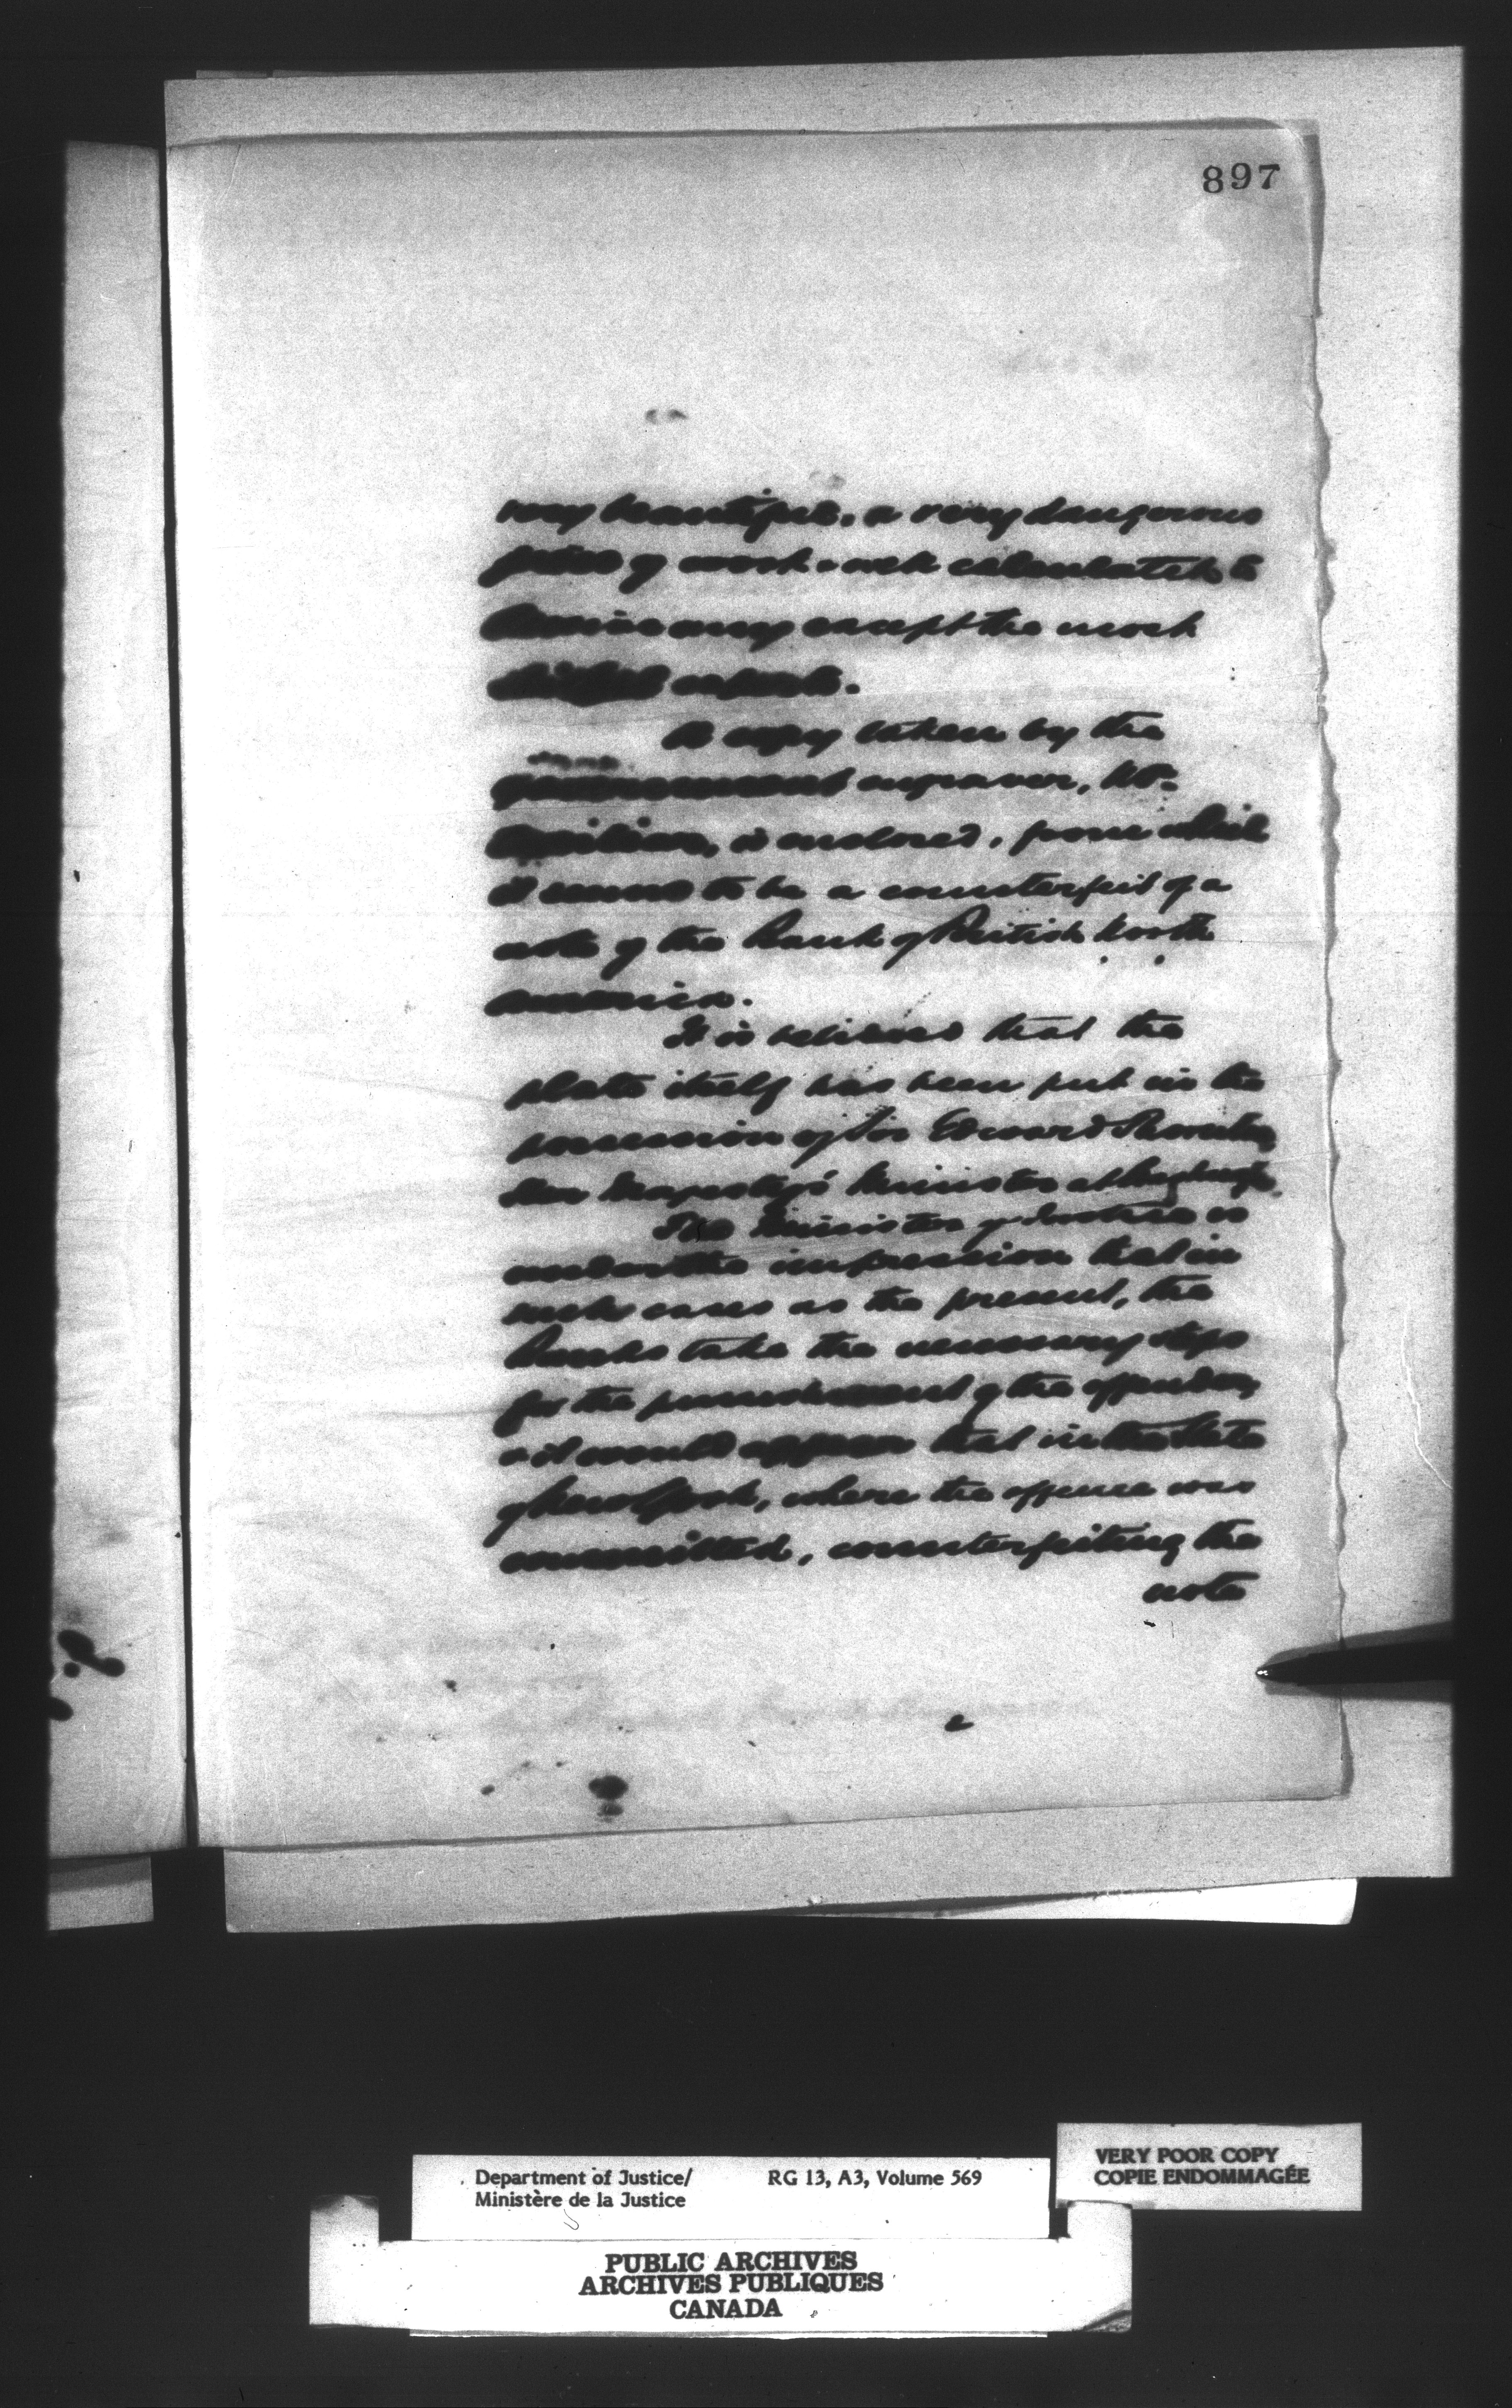 897
very beautiful, a very dangerous
piece of work & well calculated to
deceive any except the most
skilful experts.
A copy taken by the
government engraver, Mr.
is enclosed, from which
it seems to be a counterfeit of a
note of the Bank of British North
America.
It is believed that the
plate itself has been put in the
possession of Sir Edward Thornton
Her Majesty's Minister at
The Minister of Justice is
under the impression that in
such cases as the present, the
Banks take the necessary steps
for the punishment of the offender,
& it would appear that in the State
of New York, where the offence was
committed, counterfeiting the
note
Department of Justice/ RG 13, A3, Volume 569
Ministère de la Justice
VERY POOR COPY
COPIE ENDOMMAGÉE
PUBLIC ARCHIVES
ARCHIVES PUBLIQUES
CANADA